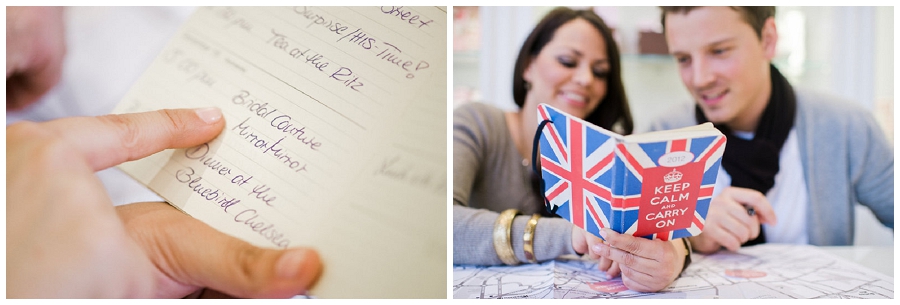 Street
pm
Surprise/HIS-Time!
Tea at the Ritz
5:00 pm
Bridal Couture
Mirror Mirror
Dinner at the
Bluebird Chelsea
2012
KEEP
CALM
AND
CARRY
ON